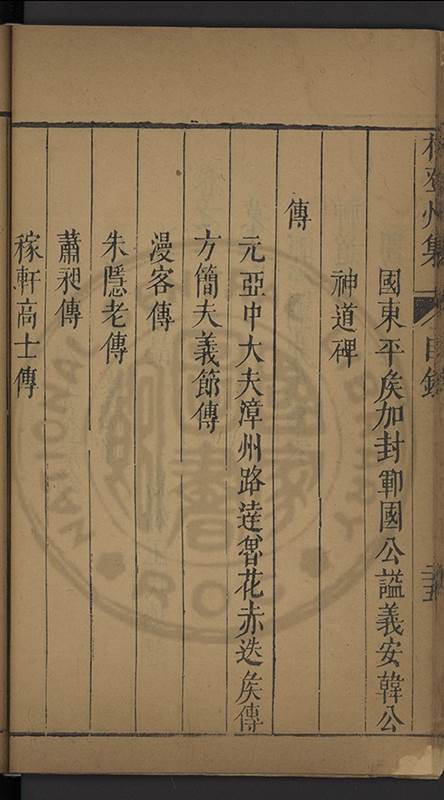 國東平矦加封鄆國公謚義安韓公
神道碑
傳
元亞中大夫漳州路達魯花赤迭矦傳
方簡夫義節傳
漫客傳
朱隱老傳
蕭昶傳
稼軒高士傳
林登州集 目錄